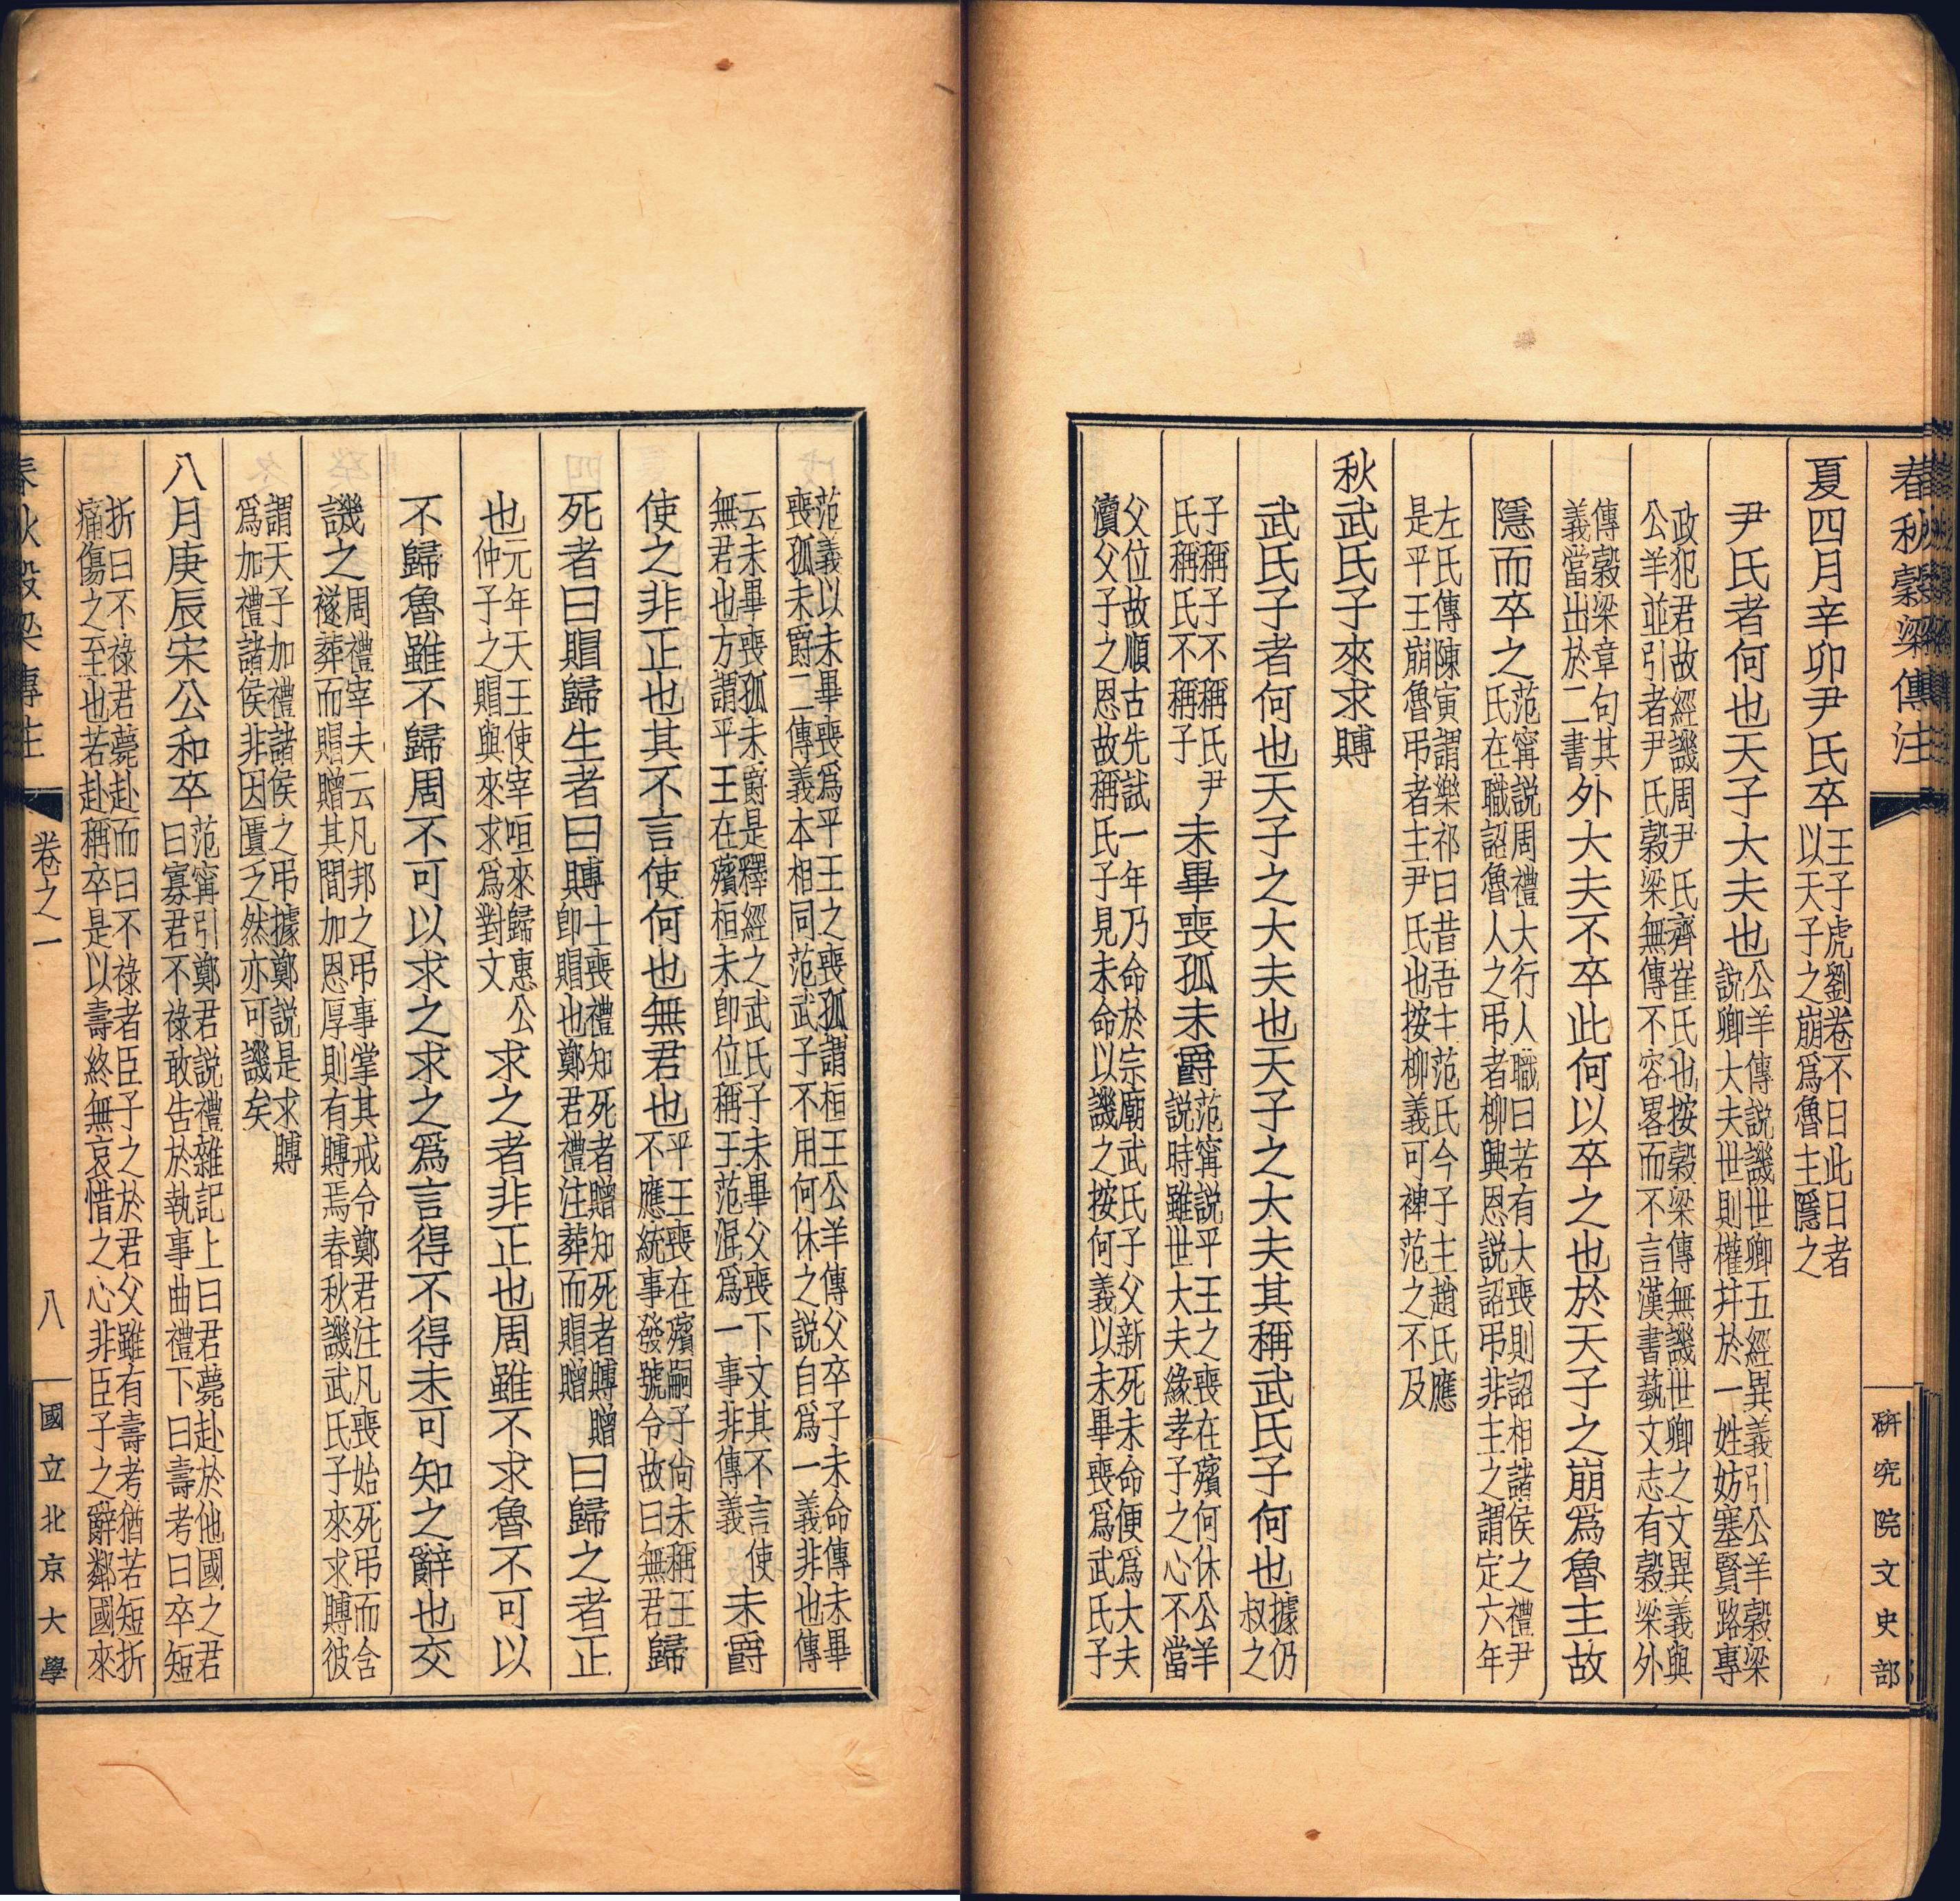 春秋穀梁傳注
研究院文史部
夏四月辛卯尹氏卒
王子虎劉卷不日此日者
以天子之崩爲魯主隱之
尹氏者何也天子大夫也
公羊傳説譏世卿五經異義引公羊穀梁
説卿大夫世則權并於一姓妨塞賢路專
政犯君故經譏周尹氏齊崔氏也按穀梁傳無譏世卿之文異義與
公羊並引者尹氏穀梁無傳不容畧而不言漢書蓺文志有穀梁外
傳穀梁章句其
義當出於二書
外大夫不卒此何以卒之也於天子之崩爲魯主故
隱而卒之
范甯説周禮大行人職曰若有大喪則詔相諸侯之禮尹
氏在職詔魯人之弔者柳興恩説詔弔非主之謂定六年
左氏傳陳寅謂樂祁曰昔吾主范氏今子主趙氏應
是平王崩魯弔者主尹氏也按柳義可裨范之不及
秋武氏子來求賻
武氏子者何也天子之大夫也天子之大夫其稱武氏子何也
據仍
叔之
子稱子不稱氏尹
氏稱氏不稱子
未畢喪孤未爵
范甯説平王之喪在殯何休公羊
説時雖世大夫緣孝子之心不當
父位故順古先試一年乃命於宗廟武氏子父新死未命便爲大夫
瀆父子之恩故稱氏子見未命以譏之按何義以未畢喪爲武氏子
范義以未畢喪爲平王之喪孤謂桓王公羊傳父卒子未命傳未畢
喪孤未爵二傳義本相同范武子不用何休之説自爲一義非也傳
云未畢喪孤未爵是釋經之武氏子未畢父喪下文其不言使
無君也方謂平王在殯桓未即位稱王范混爲一事非傳義
未爵
使之非正也其不言使何也無君也
平王喪在殯嗣子尚未稱王
不應統事發號令故曰無君
歸
死者曰賵歸生者曰賻
士喪禮知死者贈知死者賻贈
即賵也鄭君禮注葬而賵贈
曰歸之者正
也
元年天王使宰咺來歸惠公
仲子之賵與來求爲對文
求之者非正也周雖不求魯不可以
不歸魯雖不歸周不可以求之求之爲言得不得未可知之辭也交
譏之
周禮宰夫云凡邦之弔事掌其戒令鄭君注凡喪始死弔而含
襚葬而賵贈其間加恩厚則有賻焉春秋譏武氏子來求賻彼
謂天子加禮諸侯之弔據鄭説是求賻
爲加禮諸侯非因匱乏然亦可譏矣
八月庚辰宋公和卒
范甯引鄭君説禮雜記上曰君薨赴於他國之君
曰寡君不祿敢告於執事曲禮下曰壽考曰卒短
折曰不祿君薨赴而曰不祿者臣子之於君父雖有壽考猶若短折
痛傷之至也若赴稱卒是以壽終無哀惜之心非臣子之辭鄰國來
春秋穀梁傳注
卷之一
八
國立北京大學